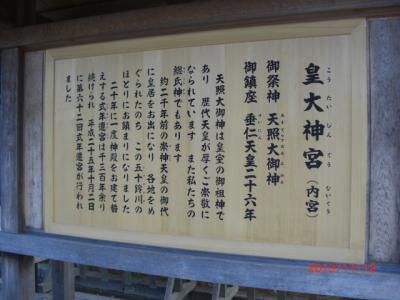 皇大神宮（内宮）
こうたいじんぐう ないくう
御祭神 天照大御神
あまてらすおおみかみ
御鎮座 垂仁天皇二十六年
すいにん
天照大御神は皇室の御祖神で
あり 歴代天皇が厚くご崇敬に
なられています また私たちの
総氏神でもあります
約二千年前の崇神天皇の御代
に皇居をお出になり 各地をめ
ぐられたのち この五十鈴川の
ほとりにお鎮まりになりました
二十年に一度 神殿をお建て替
えする式年遷宮は千三百年余り
続けられ 平成二十五年十月二日
に第六十二回式年遷宮が行われ
ました
2013/11/12